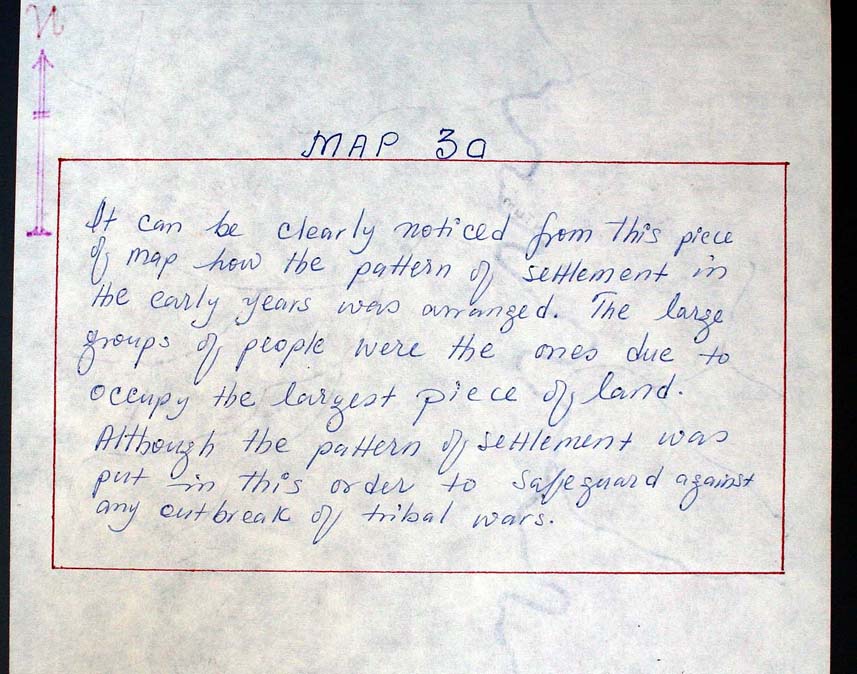 N
MAP 3a
It can be clearly noticed from this piece
of map how the pattern of settlement in
the early years was arranged. The large
groups of people were the ones due to
occupy the largest piece of land.
Although the pattern of settlement was
put in this order to safeguard against
any outbreak of tribal wars.